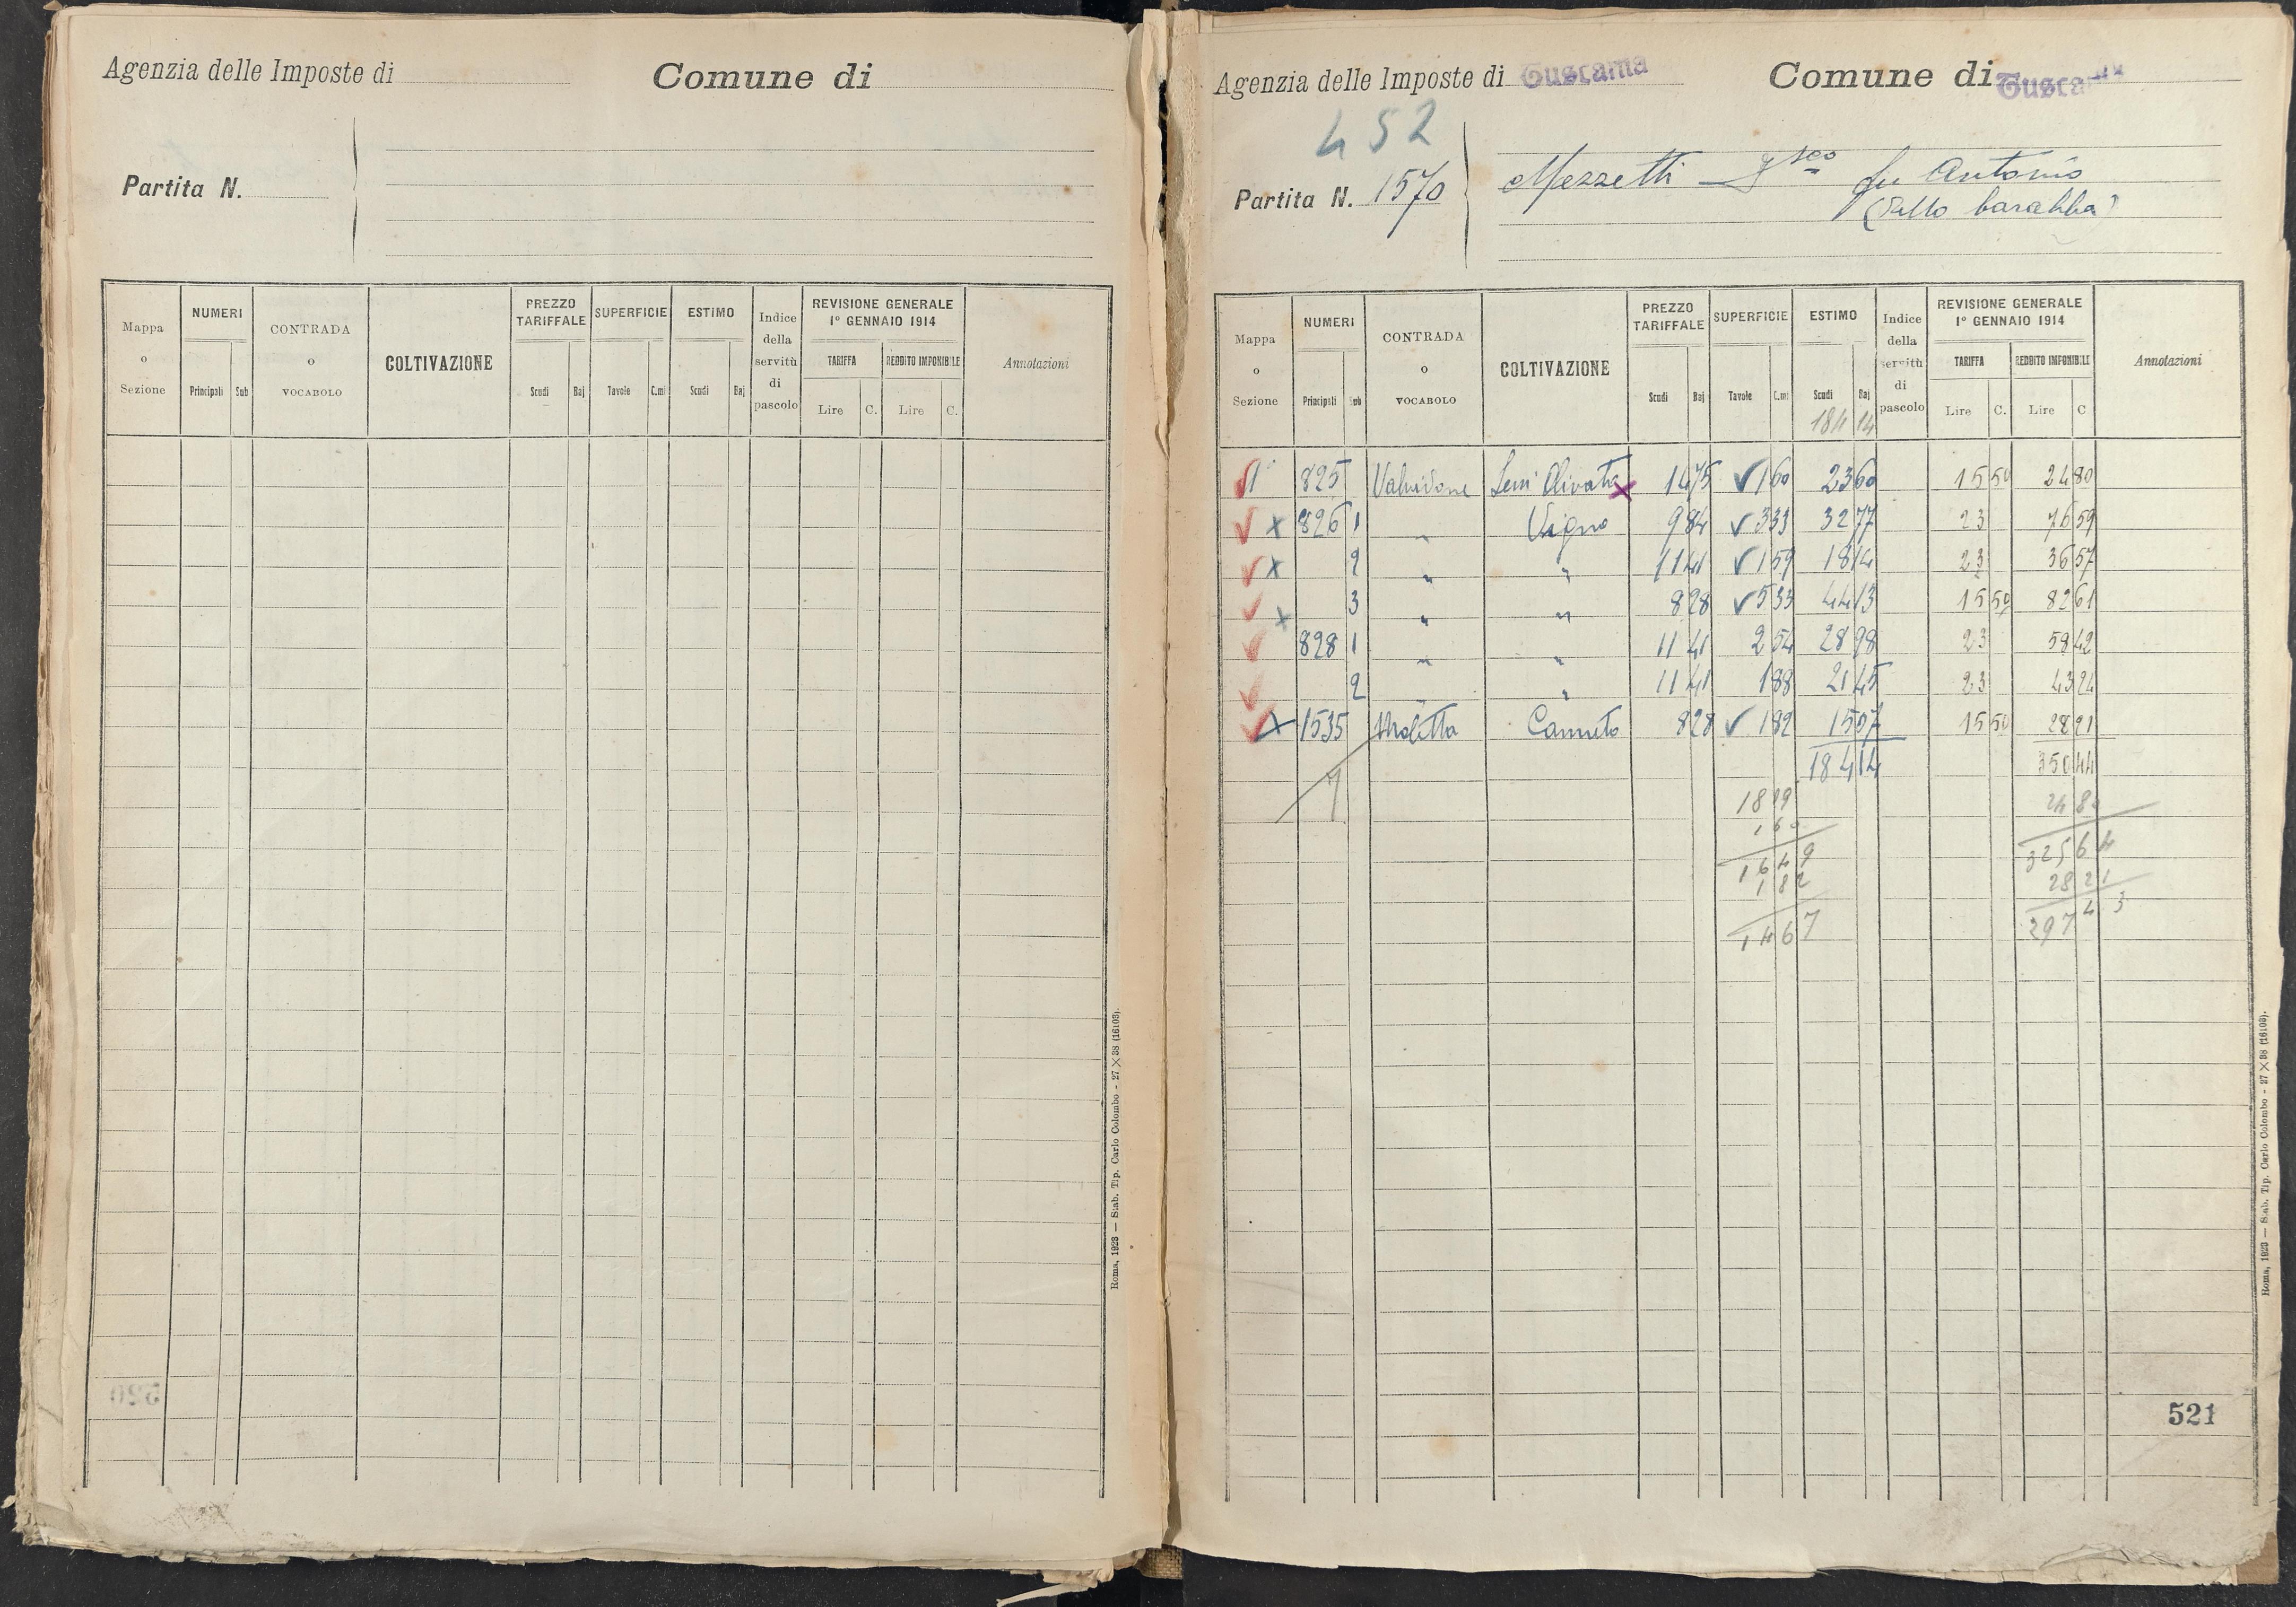 Agenzia delle Imposte di
Comune di
Partita N.
Mappa o Sezione
NUMERI
Principali Sub
CONTRADA o VOCABOLO
COLTIVAZIONE
PREZZO TARIFFALE
Scudi Baj
SUPERFICIE
Tavole C.mi
ESTIMO
Scudi Baj
Indice della servitù di pascolo
REVISIONE GENERALE 1° GENNAIO 1914
TARIFFA REDDITO IMPONIBILE
Lire C. Lire C.
Annotazioni
520
Roma, 1923 — Stab. Tip. Carlo Colombo - 27 × 38 (16103).
Agenzia delle Imposte di Tuscania
Comune di Tuscania
452
Partita N. 1570
Mezzetti Fsco fu Antonio
(Detto barabba)
Mappa o Sezione
NUMERI
Principali Sub
CONTRADA o VOCABOLO
COLTIVAZIONE
PREZZO TARIFFALE
Scudi Baj
SUPERFICIE
Tavole C.mi
ESTIMO
Scudi Baj
184 14
Indice della servitù di pascolo
REVISIONE GENERALE 1° GENNAIO 1914
TARIFFA REDDITO IMPONIBILE
Lire C. Lire C
Annotazioni
1° 825 Valvidone Semi Olivata 14 75 1 60 23 60 15 50 24 80
826 1 " Vigna 9 84 3 33 32 77 23 76 59
2 " " 11 41 1 59 18 14 23 36 57
3 " " 8 28 5 33 44 13 15 50 82 61
828 1 " " 11 41 2 54 28 98 23 58 42
2 " 11 41 1 88 21 45 23 43 24
1535 Canneto 8 28 1 82 15 07 15 50 28 21
184 14 350 44
7
18 09 24 80
1 60
16 49 325 64
1 82 28 21
14 67 297 43
521
Roma, 1923 — Stab. Tip. Carlo Colombo - 27 × 38 (16103).